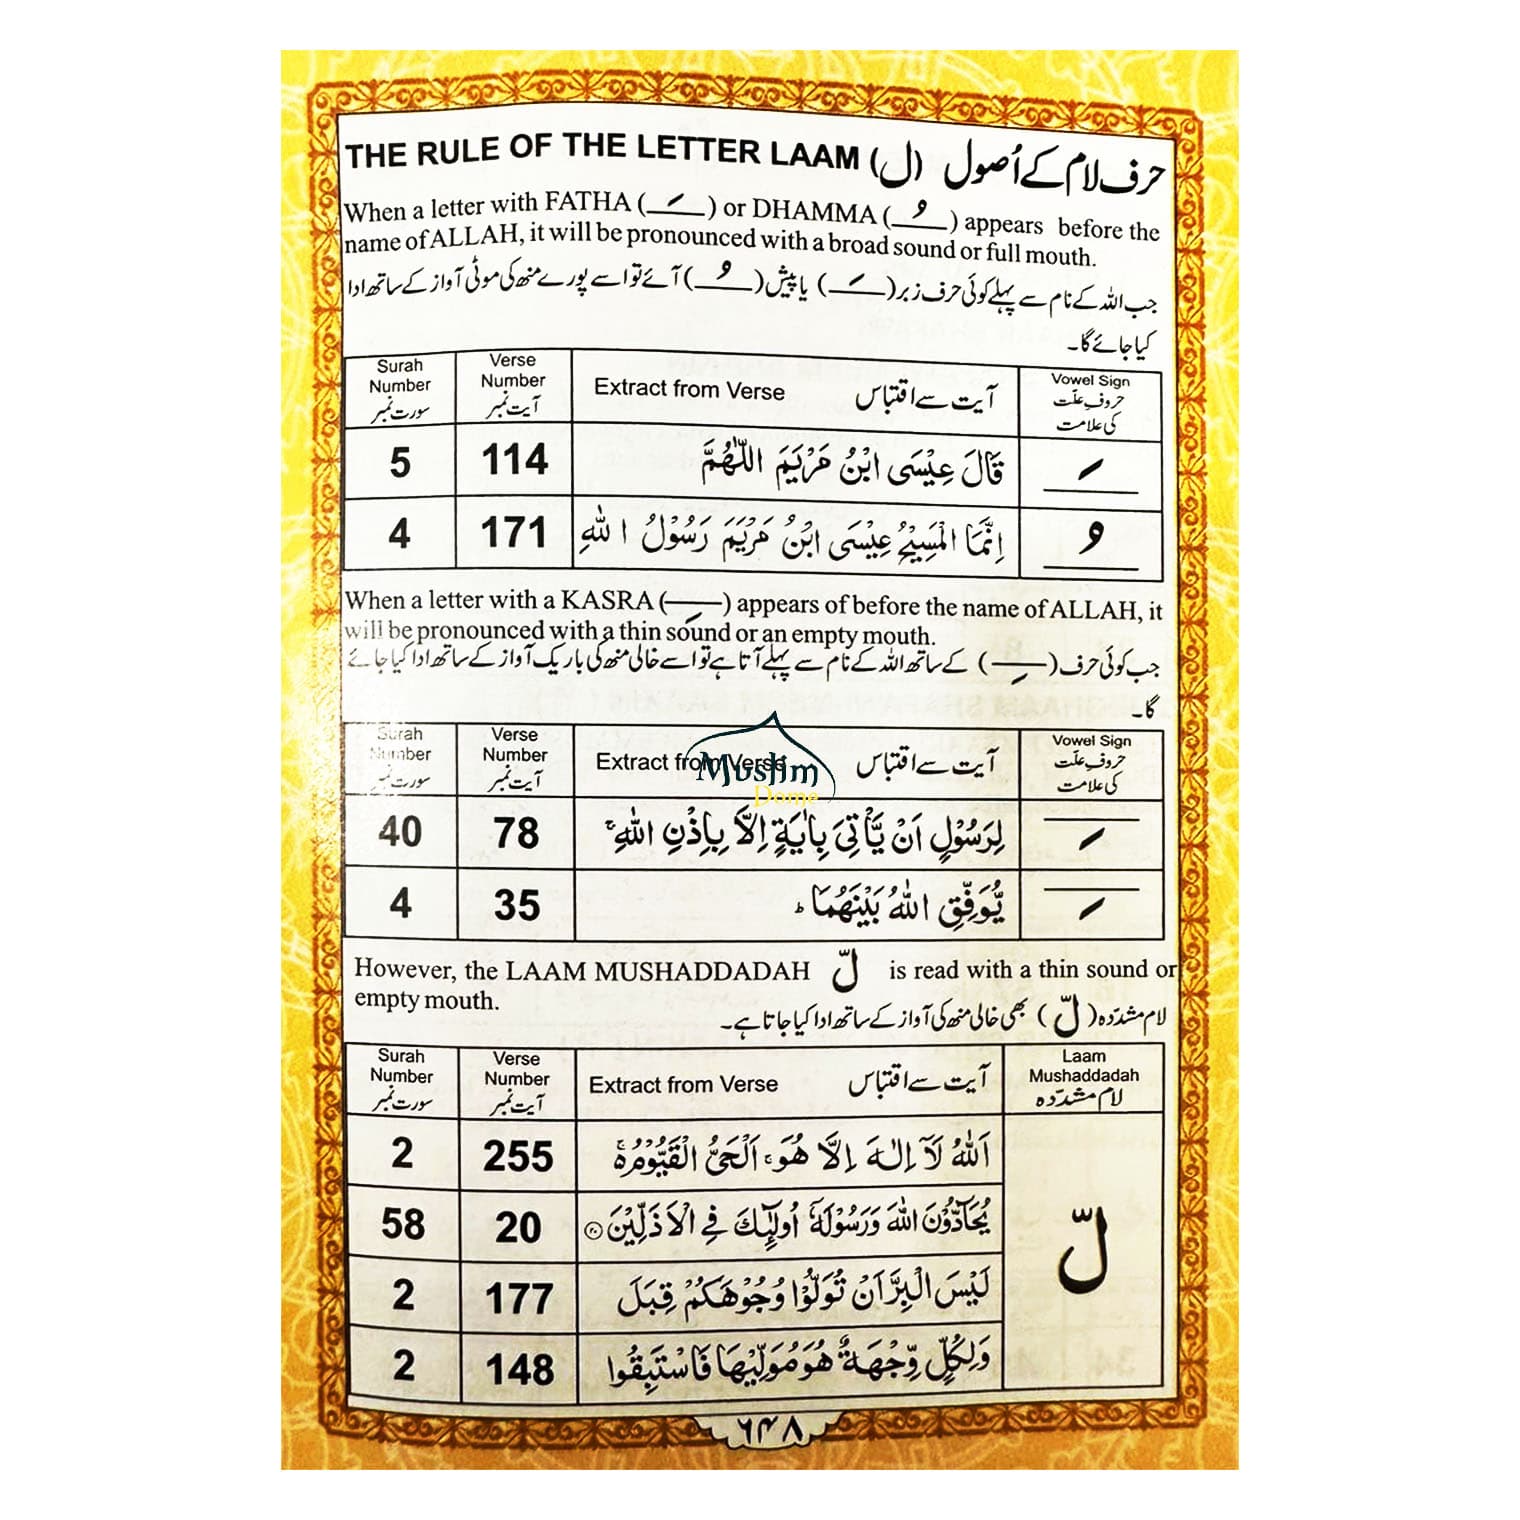 THE RULE OF THE LETTER LAAM (ل) حرف لام کے اُصول
When a letter with FATHA (َ) or DHAMMA (ُ) appears before the
name of ALLAH, it will be pronounced with a broad sound or full mouth.
جب اللہ کے نام سے پہلے کوئی حرف زبر (َ) یا پیش (ُ) آئے تو اسے پورے منھ کی موٹی آواز کے ساتھ ادا
کیا جائے گا۔
Surah Number سورت نمبر Verse Number آیت نمبر Extract from Verse آیت سے اقتباس Vowel Sign حروفِ علّت کی علامت
5 114 قَالَ عِيْسَى ابْنُ مَرْيَمَ اللّٰهُمَّ َ
4 171 اِنَّمَا الْمَسِيْحُ عِيْسَى ابْنُ مَرْيَمَ رَسُوْلُ اللّٰهِ ُ
When a letter with a KASRA (ِ) appears of before the name of ALLAH, it
will be pronounced with a thin sound or an empty mouth.
جب کوئی حرف (ِ) کے ساتھ اللہ کے نام سے پہلے آتا ہے تو اسے خالی منھ کی باریک آواز کے ساتھ ادا کیا جائے
گا۔
Surah Number سورت نمبر Verse Number آیت نمبر Extract from Verse آیت سے اقتباس Vowel Sign حروفِ علّت کی علامت
Muslim
Dome
40 78 لِرَسُوْلٍ اَنْ يَّاْتِىَ بِاٰيَةٍ اِلَّا بِاِذْنِ اللّٰهِ ۚ ِ
4 35 يُّوَفِّقِ اللّٰهُ بَيْنَهُمَا ؕ ِ
However, the LAAM MUSHADDADAH لّ is read with a thin sound or
empty mouth.
لام مشدّدہ (لّ) بھی خالی منھ کی آواز کے ساتھ ادا کیا جاتا ہے۔
Surah Number سورت نمبر Verse Number آیت نمبر Extract from Verse آیت سے اقتباس Laam Mushaddadah لام مشدّدہ
2 255 اَللّٰهُ لَآ اِلٰهَ اِلَّا هُوَ ۚ اَلْحَىُّ الْقَيُّوْمُ ۚ
58 20 يُحَآدُّوْنَ اللّٰهَ وَرَسُوْلَهٗۤ اُولٰٓئِكَ فِى الْاَذَلِّيْنَ ۲۰
لّ
2 177 لَيْسَ الْبِرَّ اَنْ تُوَلُّوْا وُجُوْهَكُمْ قِبَلَ
2 148 وَلِكُلٍّ وِّجْهَةٌ هُوَ مُوَلِّيْهَا فَاسْتَبِقُوا
۶۴۸